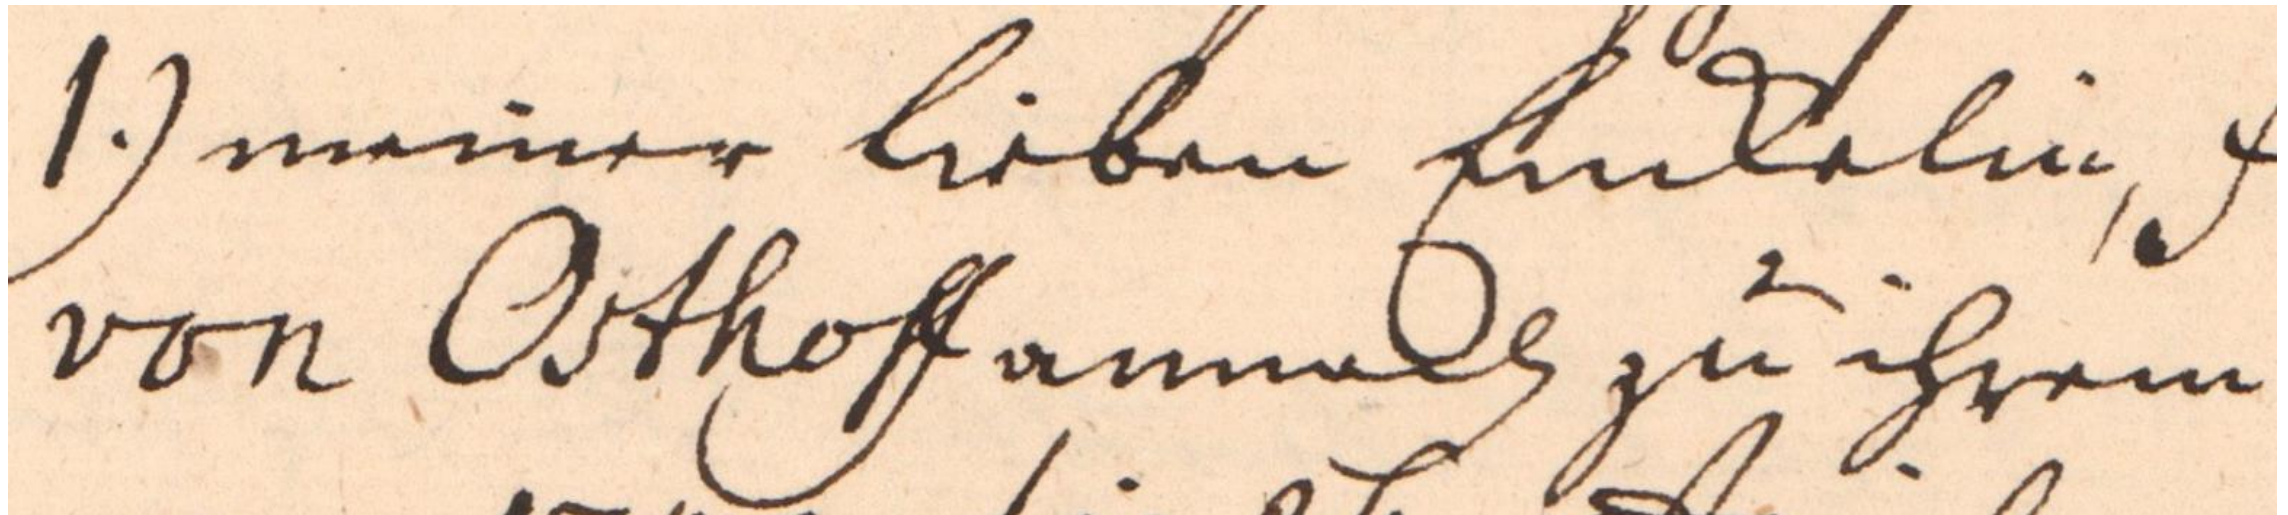 1.) meiner lieben Enkelin,
von Osthoff annoch zu ihrem